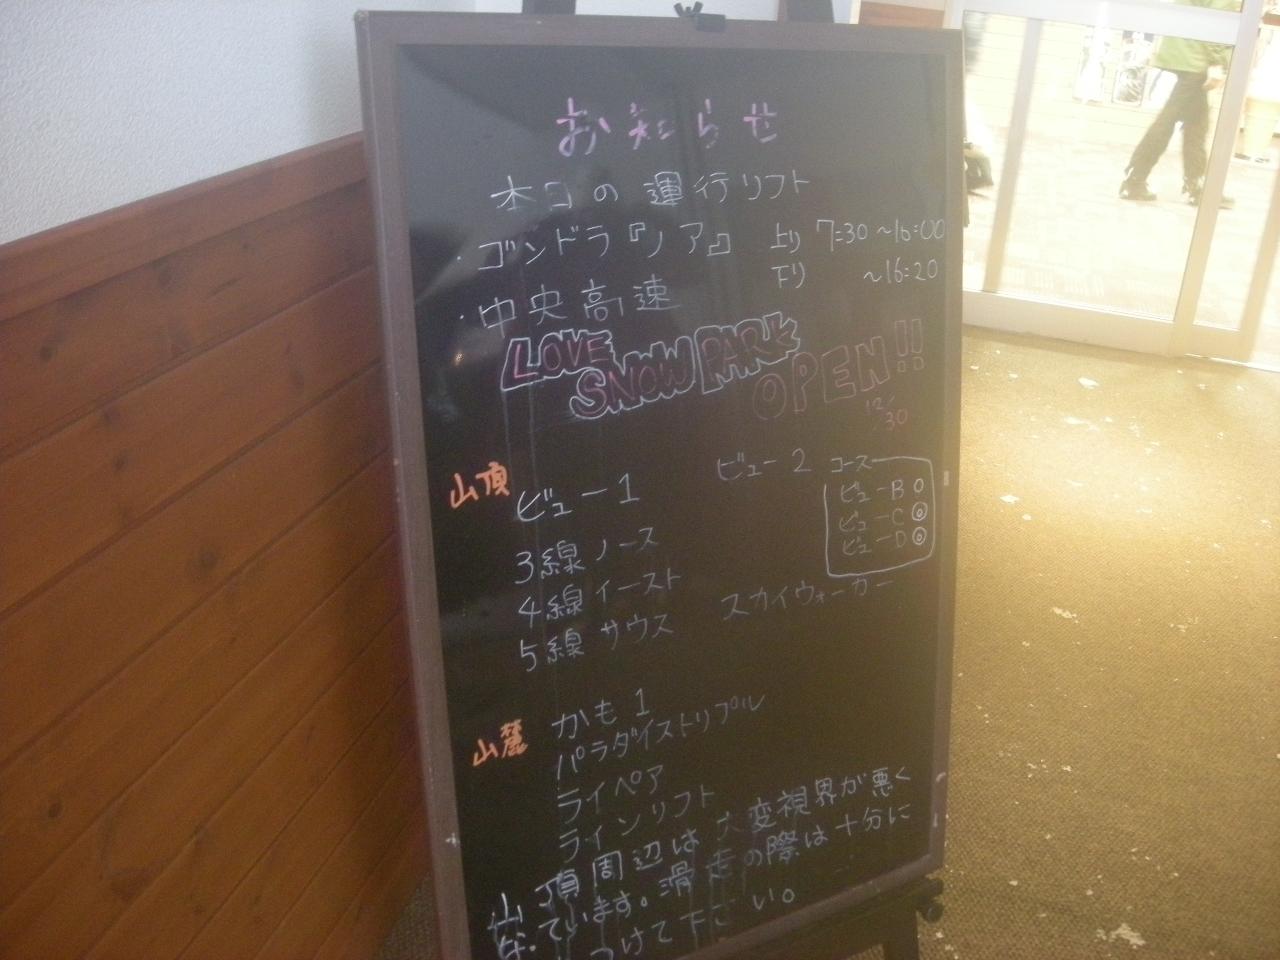 お知らせ
本日の運行リフト
・ゴンドラ『ノア』 上り 7:30～16:00
下り ～16:20
・中央高速
LOVE SNOW PARK OPEN!!
12/30
山頂 ビュー1 ビュー2
コース
ビューB○
ビューC◎
ビューD◎
3線 ノース
4線 イースト
5線 サウス スカイウォーカー
山麓 かも1
パラダイストリプル
ライペア
ラインリフト
山頂周辺は大変視界が悪く
なっています。滑走の際は十分に
つけて下さい。